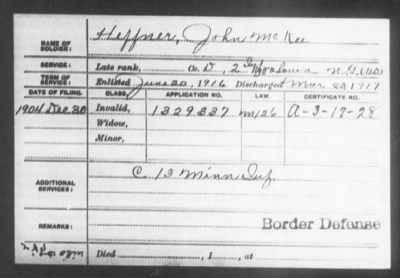 NAME OF SOLDIER: Heffner, John McKee
SERVICE: Late rank, Co. D, 2 Iowa N.G.
TERM OF SERVICE: Enlisted June 20, 1916 Discharged Mar 20 1917
DATE OF FILING. CLASS. APPLICATION NO. LAW. CERTIFICATE NO.
1904 Dec 30 Invalid, 1329337 A-3-17-28
Widow,
Minor,
ADDITIONAL SERVICES: C 13 Minn Inf.
REMARKS: Border Defense
Died , 1 , at